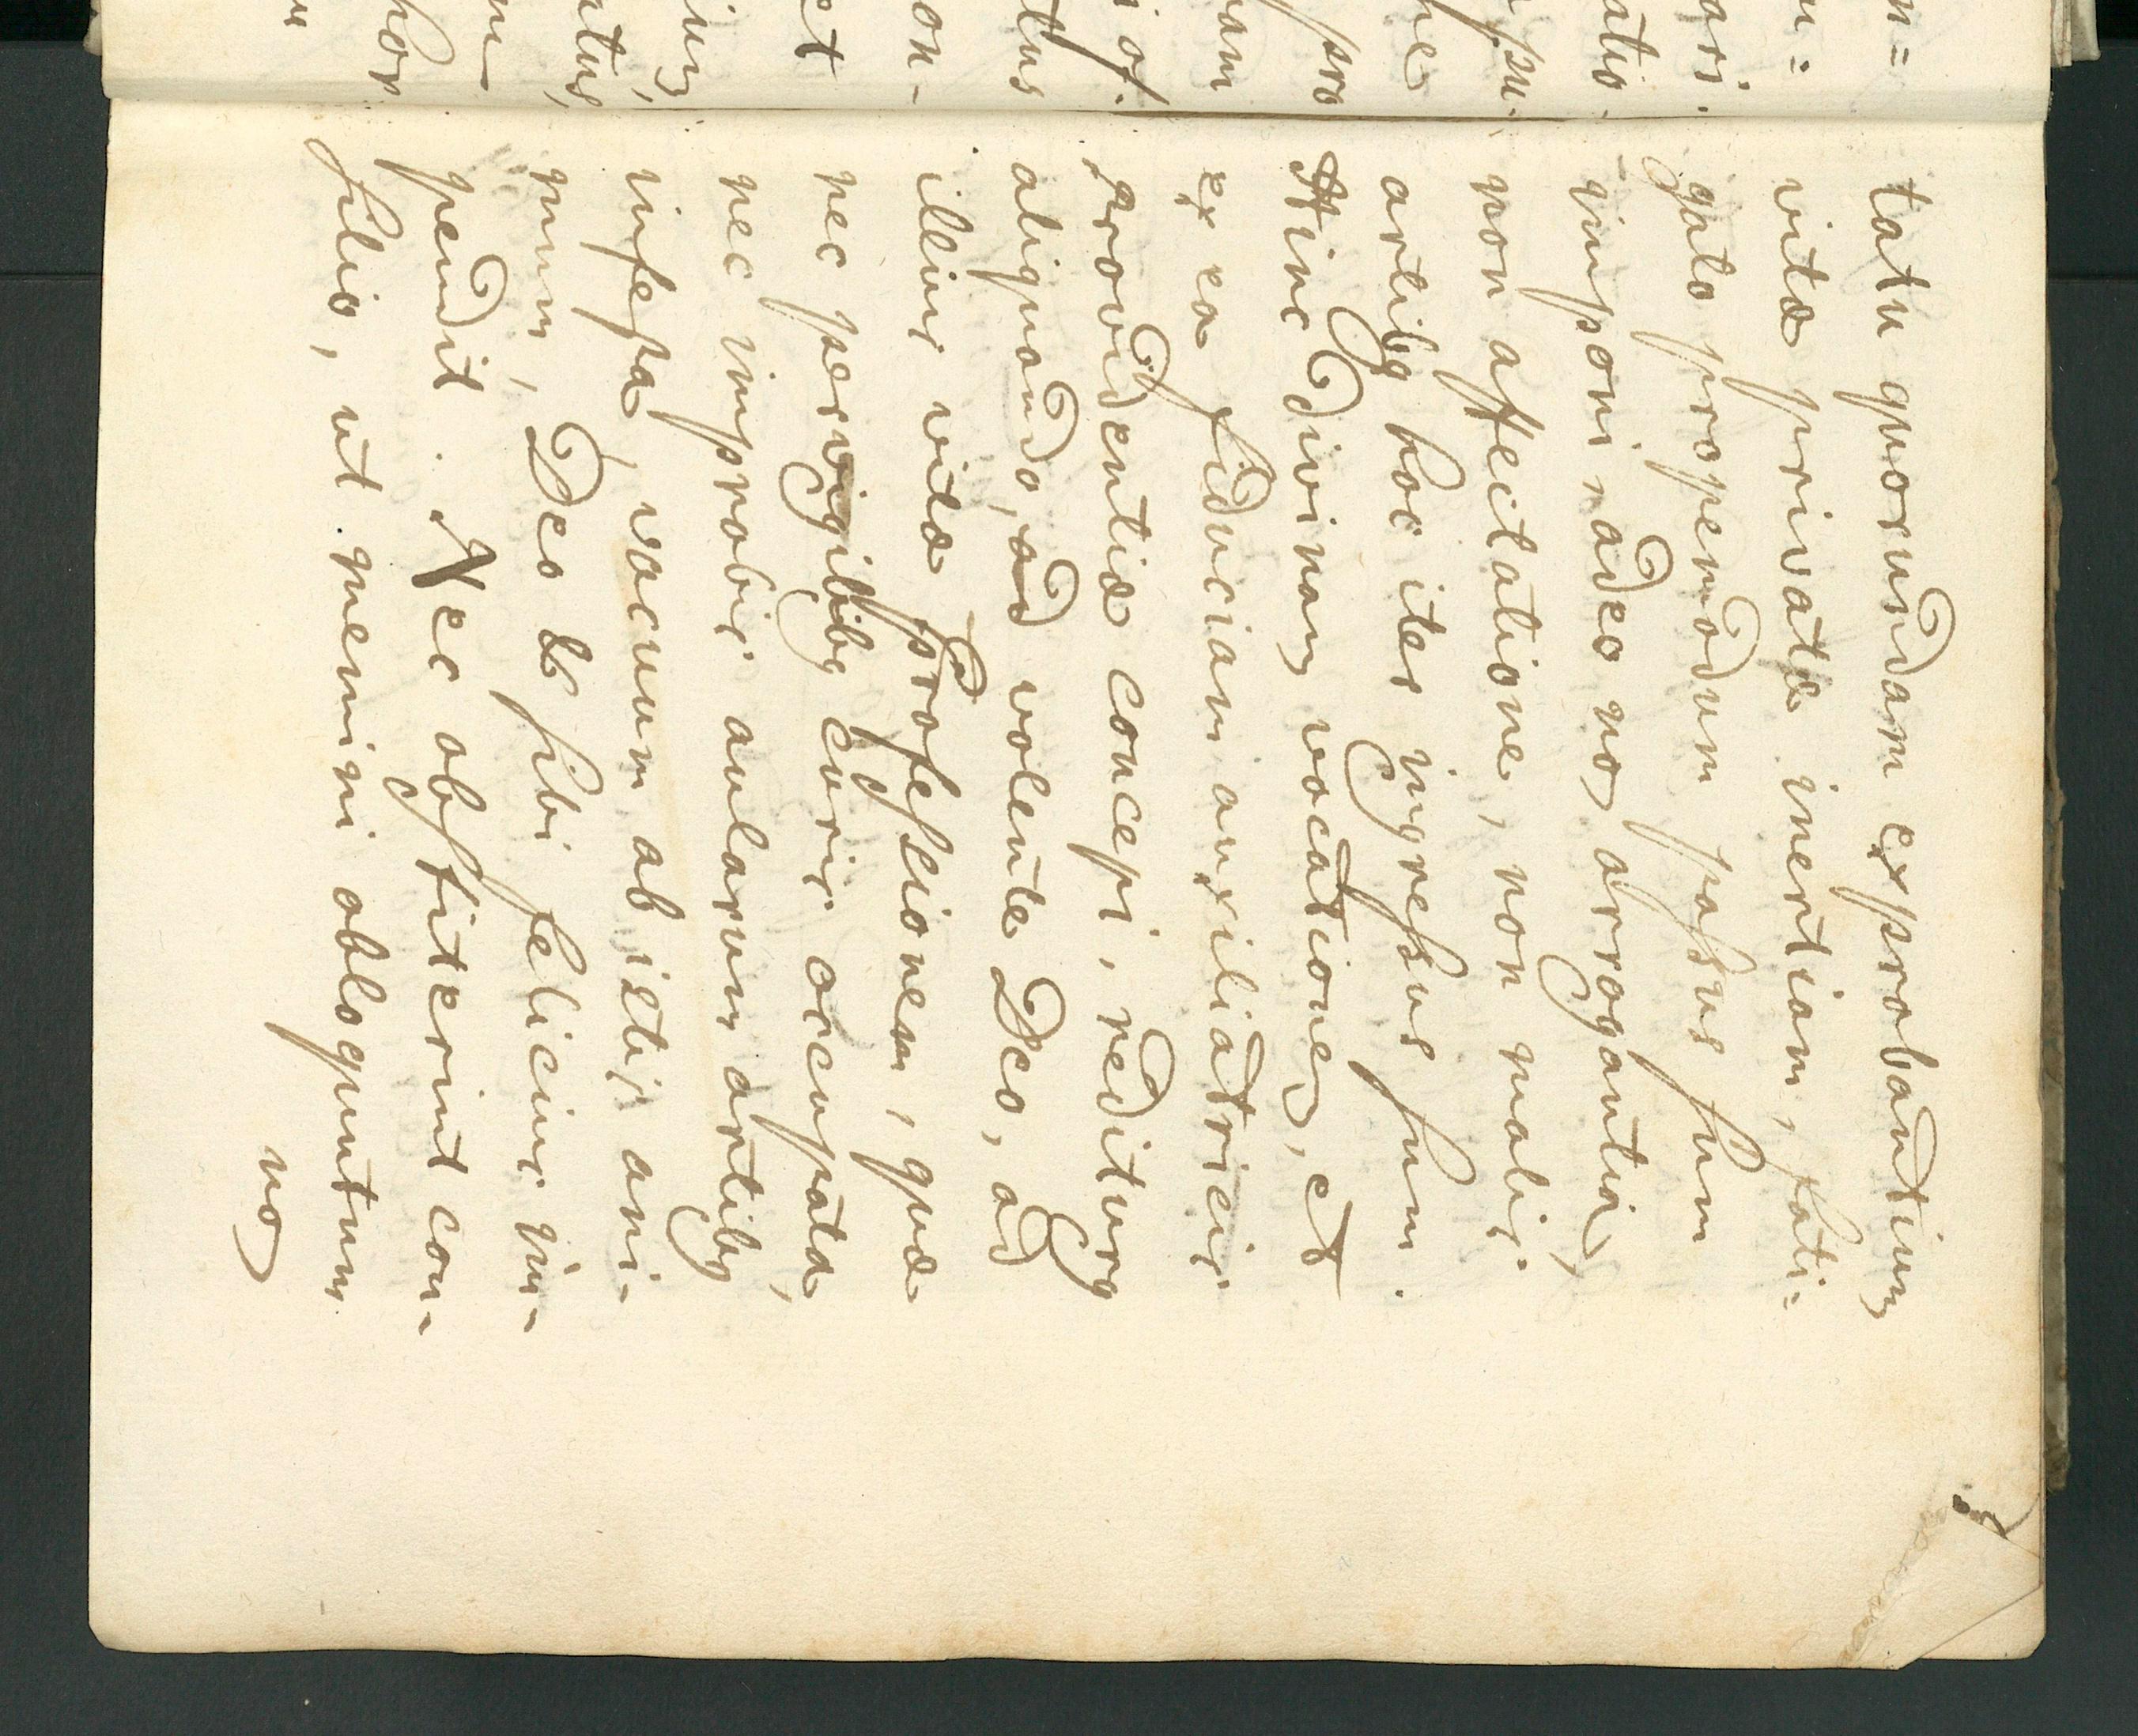 tatu quorundam exprobantium
vitæ privatæ inertiam, fati=
gato propemodum passus sum
imponi, adeo non arrogantia,
non affectatione, non malis
artibq hoc iter ingressus sum.
Hinc divinam vocationem, et
ex ea fiduciam auxiliatricis
providentiæ concepi, rediturq
aliquando, ad volente Deo, ad
illius vitæ professionem, quæ
nec pervigilibq curis occupata,
nec improbis aularum artibq
infesta, vacuum ab istis ani-
mum, Deo & sibi felicius im-
pendit. Nec obstiterint con-
silio, ut nemini obloquntum
non